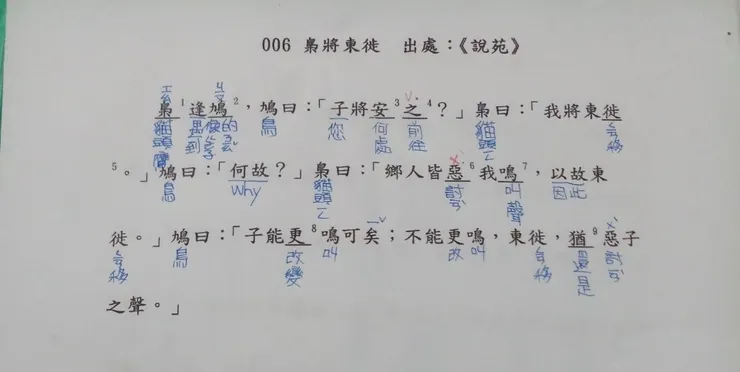 006 梟將東徙 出處：《說苑》
ㄒㄧㄠ ㄐㄧㄡ
梟1逢鳩2，鳩曰：「子將安3之4？」梟曰：「我將東徙
貓頭鷹 遇到 鳥 您 何處 前往 貓頭ㄥ
5。」鳩曰：「何故？」梟曰：「鄉人皆惡6我鳴7，以故東
鳥 why 貓頭ㄥ 叫聲 因此
徙。」鳩曰：「子能更8鳴可矣；不能更鳴，東徙，猶9惡子
鳥 改變 叫 改 叫 還是
之聲。」